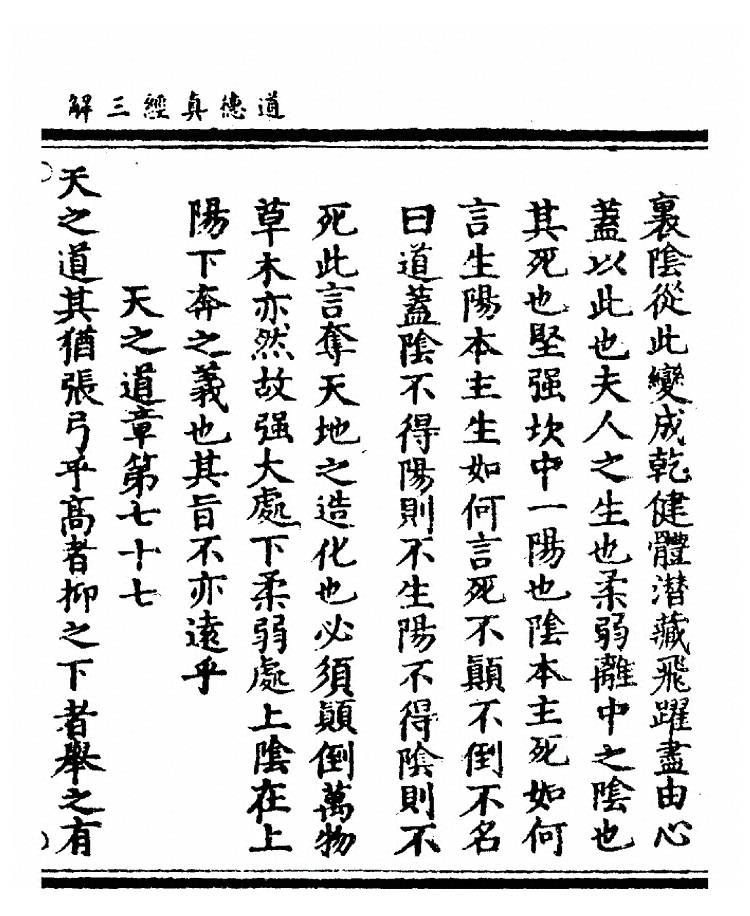 道德真經三解
裏陰從此變成乾健體潛藏飛躍盡由心
蓋以此也夫人之生也柔弱離中之陰也
其死也堅强坎中一陽也陰本主死如何
言生陽本主生如何言死不顚不倒不名
曰道蓋陰不得陽則不生陽不得陰則不
死此言奪天地之造化也必須顚倒萬物
草木亦然故强大處下柔弱處上陰在上
陽下奔之義也其旨不亦遠乎
天之道章第七十七
天之道其猶張弓乎高者抑之下者擧之有